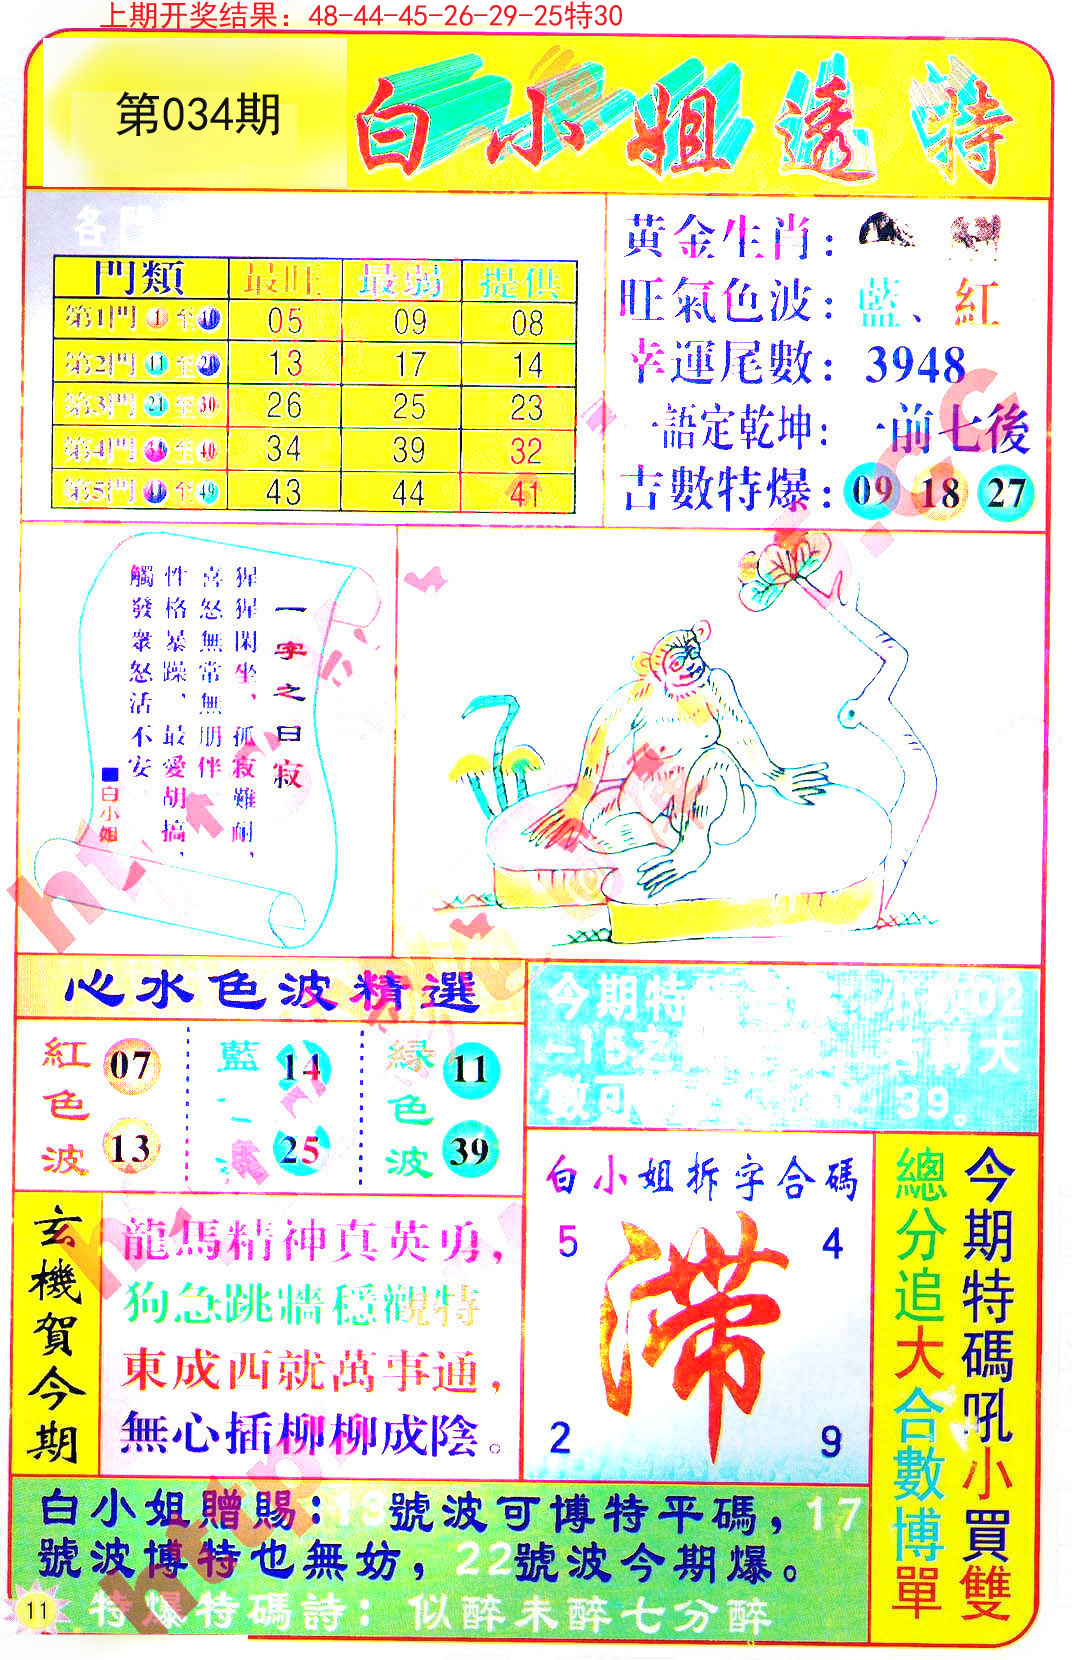 上期开奖结果：48-44-45-26-29-25特30
第034期
白小姐透特
各門
門類 最旺 最弱 提供
第1門 1 至 10 05 09 08
第2門 11 至 20 13 17 14
第3門 21 至 30 26 25 23
第4門 31 至 40 34 39 32
第5門 41 至 49 43 44 41
黃金生肖：
旺氣色波：藍、紅
幸運尾數：3948
一語定乾坤：一前七後
古數特爆：09 18 27
一字之曰寂
猩猩閑坐，孤寂難耐，
喜怒無常無朋伴
性格暴躁，最愛胡搞，
觸發衆怒活不安
■白小姐
心水色波精選
紅色波 07 13
藍 14 25
緑色波 11 39
今期特 數02
-15之 若轉大
數可 39。
玄機賀今期
龍馬精神真英勇，
狗急跳牆穩觀特
東成西就萬事通，
無心插柳柳成陰。
白小姐拆字合碼
5 4
滞
2 9
今期特碼吼小買雙
總分追大合數博單
白小姐贈賜：13號波可博特平碼，17
號波博特也無妨，22號波今期爆。
特爆特碼詩：似醉未醉七分醉
11